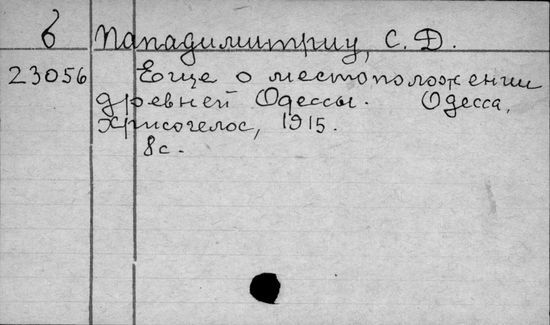 б Пападимитриу, С. Д.
23056 Еще о местоположении
древней Одессы. Одесса,
Хрисогелос, 1915.
8с.